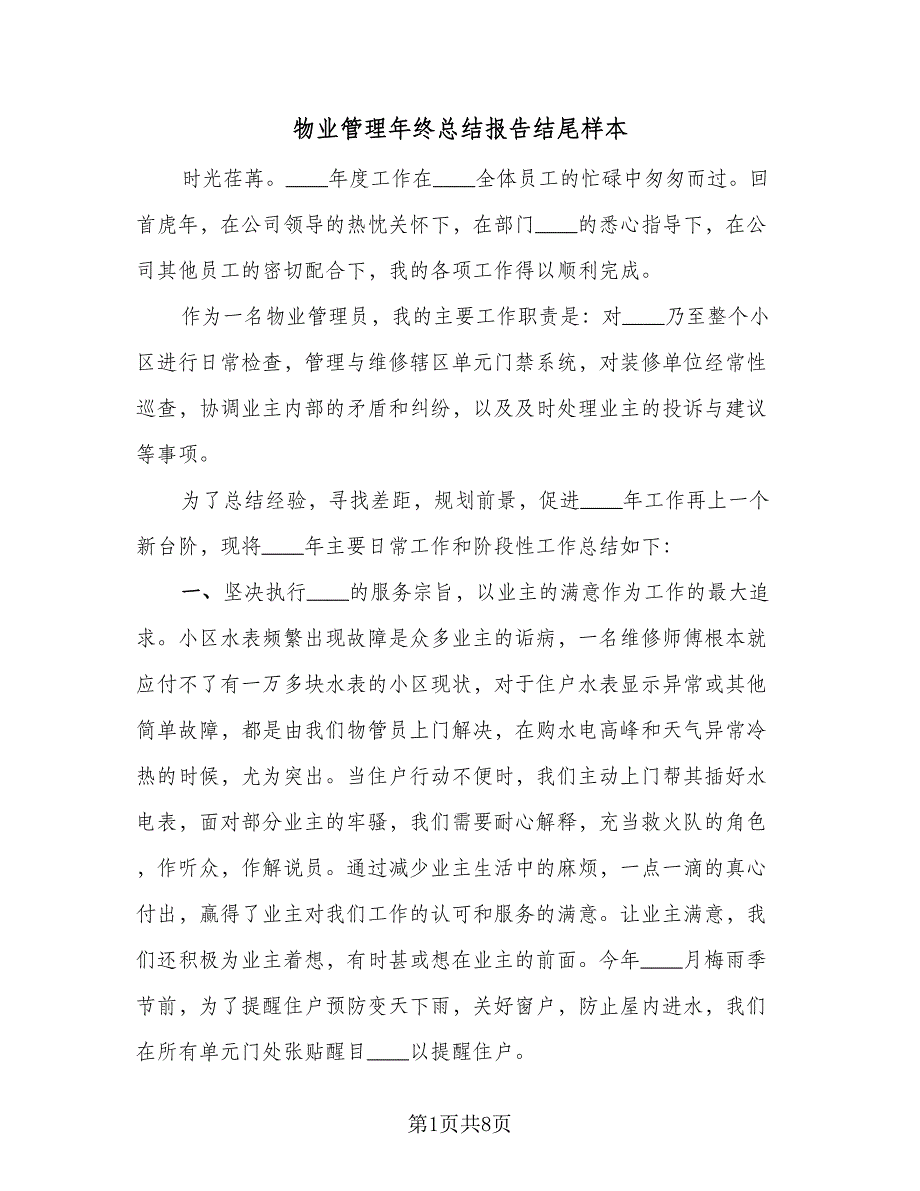 物业管理年终总结报告结尾样本
时光荏苒。____年度工作在____全体员工的忙碌中匆匆而过。回
首虎年，在公司领导的热忱关怀下，在部门____的悉心指导下，在公
司其他员工的密切配合下，我的各项工作得以顺利完成。
作为一名物业管理员，我的主要工作职责是：对____乃至整个小
区进行日常检查，管理与维修辖区单元门禁系统，对装修单位经常性
巡查，协调业主内部的矛盾和纠纷，以及及时处理业主的投诉与建议
等事项。
为了总结经验，寻找差距，规划前景，促进____年工作再上一个
新台阶，现将____年主要日常工作和阶段性工作总结如下：
一、坚决执行____的服务宗旨，以业主的满意作为工作的最大追
求。小区水表频繁出现故障是众多业主的诟病，一名维修师傅根本就
应付不了有一万多块水表的小区现状，对于住户水表显示异常或其他
简单故障，都是由我们物管员上门解决，在购水电高峰和天气异常冷
热的时候，尤为突出。当住户行动不便时，我们主动上门帮其插好水
电表，面对部分业主的牢骚，我们需要耐心解释，充当救火队的角色
，作听众，作解说员。通过减少业主生活中的麻烦，一点一滴的真心
付出，赢得了业主对我们工作的认可和服务的满意。让业主满意，我
们还积极为业主着想，有时甚或想在业主的前面。今年____月梅雨季
节前，为了提醒住户预防变天下雨，关好窗户，防止屋内进水，我们
在所有单元门处张贴醒目____以提醒住户。
第1页共8页